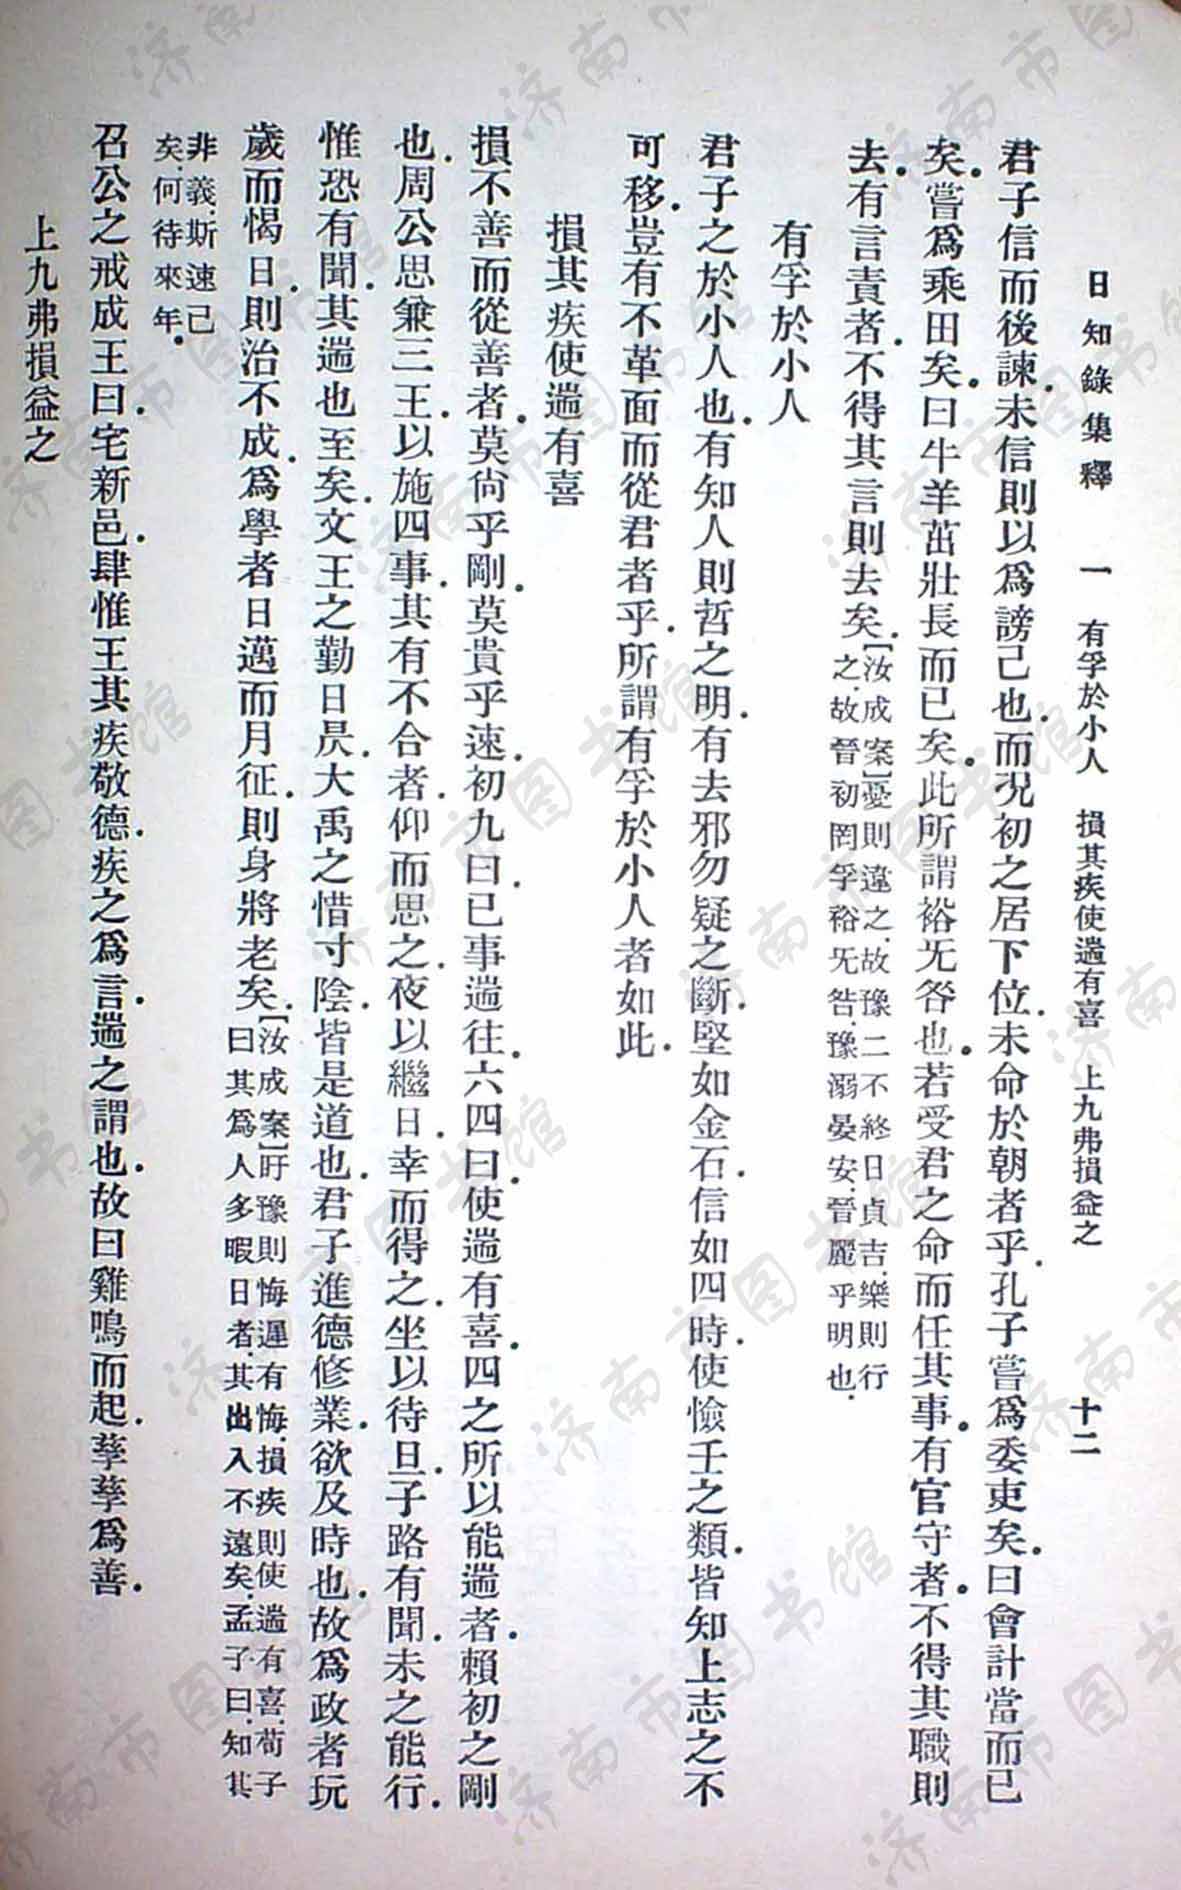 日知錄集釋　一　有孚於小人　損其疾使遄有喜　上九弗損益之　十二
君子信而後諫．未信則以爲謗己也．而況初之居下位．未命於朝者乎．孔子嘗爲委吏矣．曰會計當而已
矣．嘗爲乘田矣．曰牛羊茁壯長而已矣．此所謂裕旡咎也．若受君之命而任其事．有官守者．不得其職則
去．有言責者．不得其言則去矣．［汝成案］憂則違之．故豫二不終日貞吉．樂則行
之．故晉初罔孚裕旡咎．豫溺晏安．晉麗乎明也．
有孚於小人
君子之於小人也．有知人則哲之明．有去邪勿疑之斷．堅如金石．信如四時．使憸壬之類．皆知上志之不
可移．豈有不革面而從君者乎．所謂有孚於小人者如此．
損其疾使遄有喜
損不善而從善者．莫尙乎剛．莫貴乎速．初九曰．已事遄往．六四曰．使遄有喜．四之所以能遄者．賴初之剛
也．周公思兼三王．以施四事．其有不合者．仰而思之．夜以繼日．幸而得之．坐以待旦．子路有聞．未之能行．
惟恐有聞．其遄也至矣．文王之勤日昃．大禹之惜寸陰．皆是道也．君子進德修業．欲及時也．故爲政者玩
歲而愒日．則治不成．爲學者日邁而月征．則身將老矣．［汝成案］盱豫則悔遲有悔．損疾則使遄有喜．荀子
曰其爲人多暇日者．其出入不遠矣．孟子曰．知其
非義．斯速已
矣．何待來年．
召公之戒成王曰．宅新邑．肆惟王其疾敬德．疾之爲言．遄之謂也．故曰雞鳴而起．孳孳爲善．
上九弗損益之